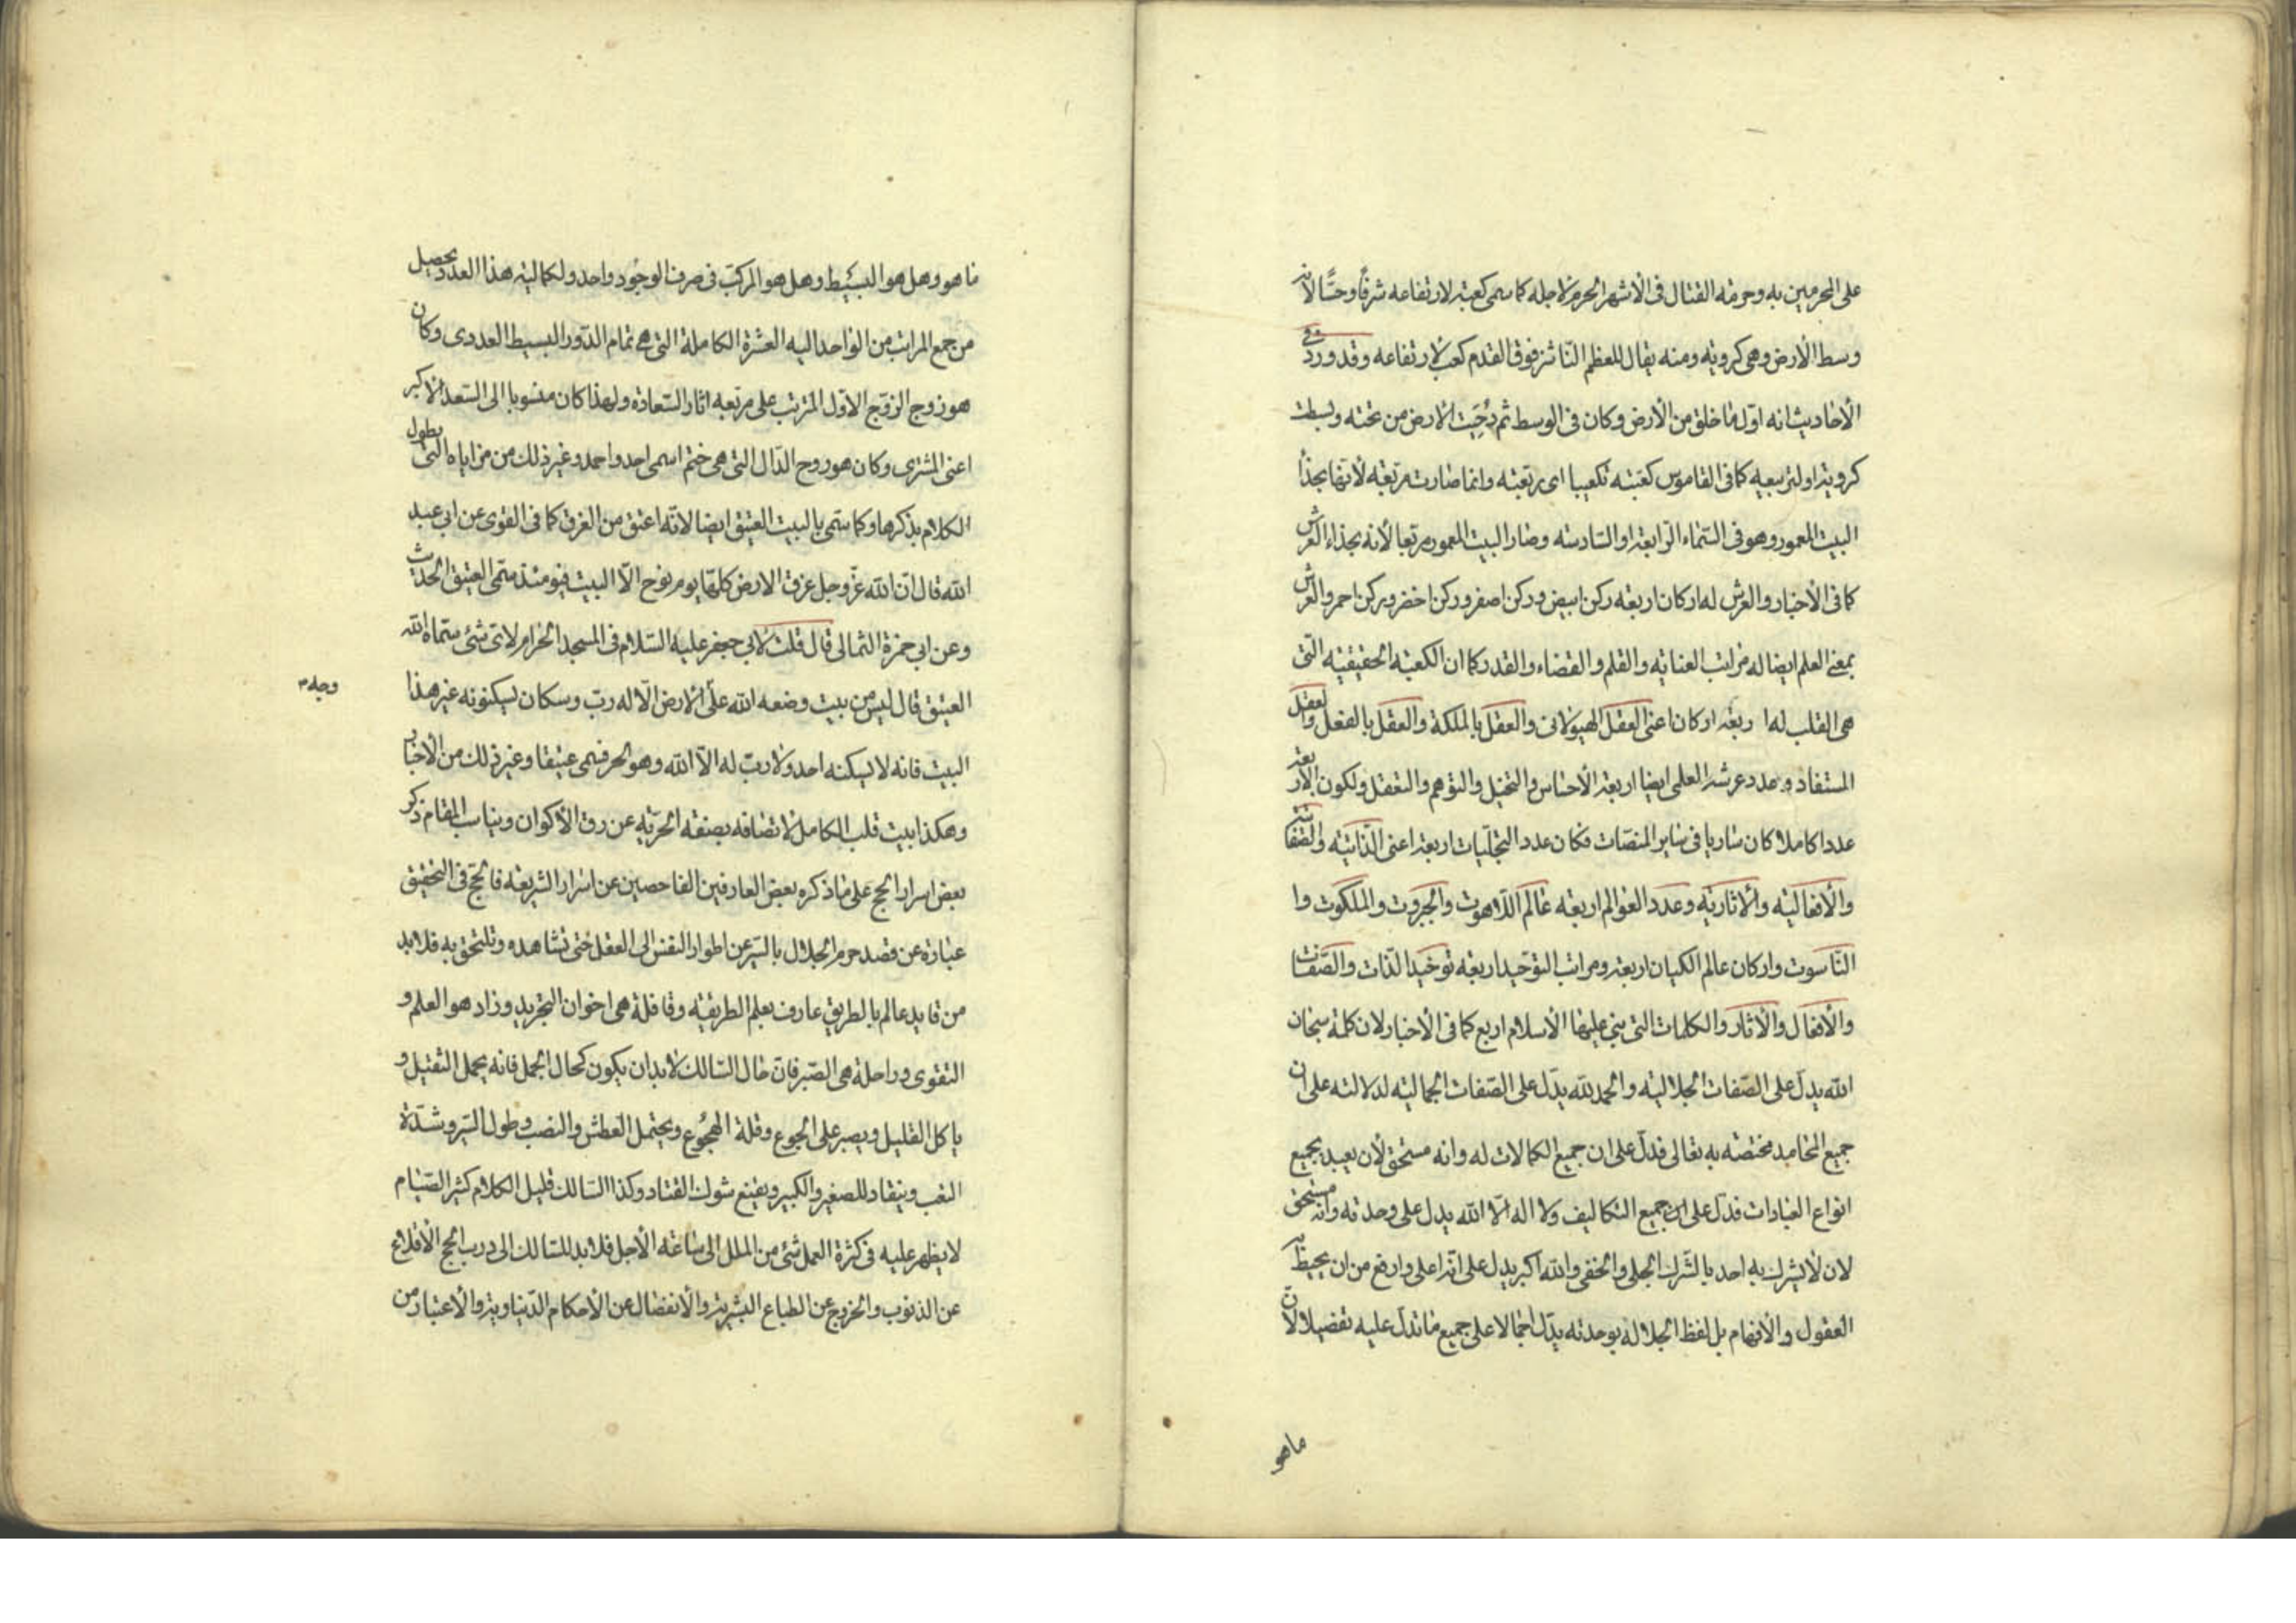 على المحرمين به وحرمة القتال فى الأشهر الحرم لاجله كما سمى كعبة لارتفاعه شرفًا وحسًّا لانه
وسط الأرض وهى كروية ومنه يقال للعظم الناشز فوق القدم كعب لارتفاعه وقد ورد فى
الأحاديث انه اوّل ما خلق من الأرض وكان فى الوسط ثم دُحِيَت الارض من تحته وبسطت
كروية او لتربيعه كما فى القاموس كعبته تكعيبا اى ربّعته وانما صارت مربّعه لأنها بحذاء
البيت المعمور وهو فى السّماء الرّابعة او السّادسة وصار البيت المعمور مربّعا لأنه بحذاء العرش
كما فى الأخبار والعرش له اركان اربعة ركن ابيض وركن اصفر وركن اخضر وركن احمر والعرش
بمعنى العلم ايضا له مراتب العناية والقلم والقضاء والقدر كما ان الكعبة الحقيقية التى
هى القلب لها اربعة اركان اعنى العقل الهيولانى والعقل بالملكة والعقل بالفعل والعقل
المستفاد وعدد عرشه العلمى ايضا اربعة الأحساس والتخيل والتوهم والتعقل ولكون الأربعة
عددا كاملا كان ساريا فى ساير المنصّات فكان عدد التجلّيات اربعة اعنى الذّاتيّه والصّفاتيّه
والأفعاليّه والأثاريّه وعدد العوالم اربعة عالم اللّاهوت والجبروت والملكوت وا
النّاسوت واركان عالم الكيان اربعة ومراتب التوحيد اربعة توحيد الذّات والصّفات
والأفعال والأثار والكلمات التى بنى عليها الأسلام اربع كما فى الأخبار لان كلمة سبحان
الله يدلّ على الصّفات الجلاليّه والحمد لله يدّل على الصّفات الجماليّه لدلالته على ان
جميع المحامد مختصّه به تعالى فدلّ على ان جميع الكمالات له وانه مستحق لأن يعبد بجميع
انواع العبادات فدلّ على ان جميع التكاليف ولا اله الّا الله يدل على وحدته وانّه مستحق
لان لا يشرك به احد بالشّرك الجلى والخفى والله اكبر يدل على انّه اعلى وارفع من ان يحيط به
العقول والأفهام بل لفظ الجلالة بوحدته يدّل اجمالا على جميع ما تدلّ عليه تفصيلا لأنّ
ماهو
ما هو وهل هو البسيط وهل هو المركّب فى صرف الوجود واحد ولكماليّة هذا العدد يحصل
من جمع المراتب من الواحد اليه العشرة الكاملة التى هى تمام الدّور البسيط العددى وكان
هو زوج الزّوج الاوّل المرتّب على مرتعبه اثار السّعادة ولهذا كان منسوبا الى السّعد الاكبر
اعنى المشترى وكان هو روح الدّال التى هى ختم اسمى احد واحمد وغير ذلك من مزاياه التى يطول
الكلام بذكرها وكما سمّى بالبيت العتيق ايضا لانّه اعتق من الغرق كما فى القوى عن ابى عبد
الله قال انّ الله عزّ وجل غرق الارض كلّها يوم نوح الّا البيت فيومئذ سمّى العتيق الحديث
وعن ابى حمزة الثمالى قال قلت لابى جعفر عليه السّلام فى المسجد الحرام لاىّ شئ سمّاه الله
العتيق قال ليس من بيت وضعه الله على الارض الّا له ربّ وسكان ليسكنونه غير هذا
وجه
البيت فانه لا يسكنه احد ولا ربّ له الاّ الله وهو الحر فسمى عتيقا وغير ذلك من الأخبار
وهكذا بيت قلب الكامل لاتصافه بصفة الحرّيّه عن رق الأكوان ويناسب المقام ذكر
بعض اسرار الحج على ما ذكره بعض العارفين الفاحصين عن اسرار الشّريعة فالحجّ فى التّحقيق
عبارة عن قصد حرم الجلال بالسّير عن اطوار النفس الى العقل حتى تشاهده وتلتحق به فلابد
من قايد عالم بالطريق عارف بعلم الطريقة وقافلة هى اخوان التجريد وزاد هو العلم و
التقوى وراحلة هى الصّبر فانّ حال السّالك لابد ان يكون كحال الجمل فانه يحمل الثقيل و
ياكل القليل ويصبر على الجوع وقلة الهجُوع ويحتمل العطش والنصب وطول السّير وشدّة
التعب وينقاد للصغير والكبير ويقنع بشوك القتاد وكذا السّالك قليل الكلام كثير الصّيام
لا يظهر عليه فى كثرة العمل شئ من الملل الى ساعة الأجل فلابد للسّالك الى درب الحج الأقلاع
عن الذنوب والخروج عن الطباع البشرية والأنفصال عن الأحكام الدّنياوية والأعتبار من